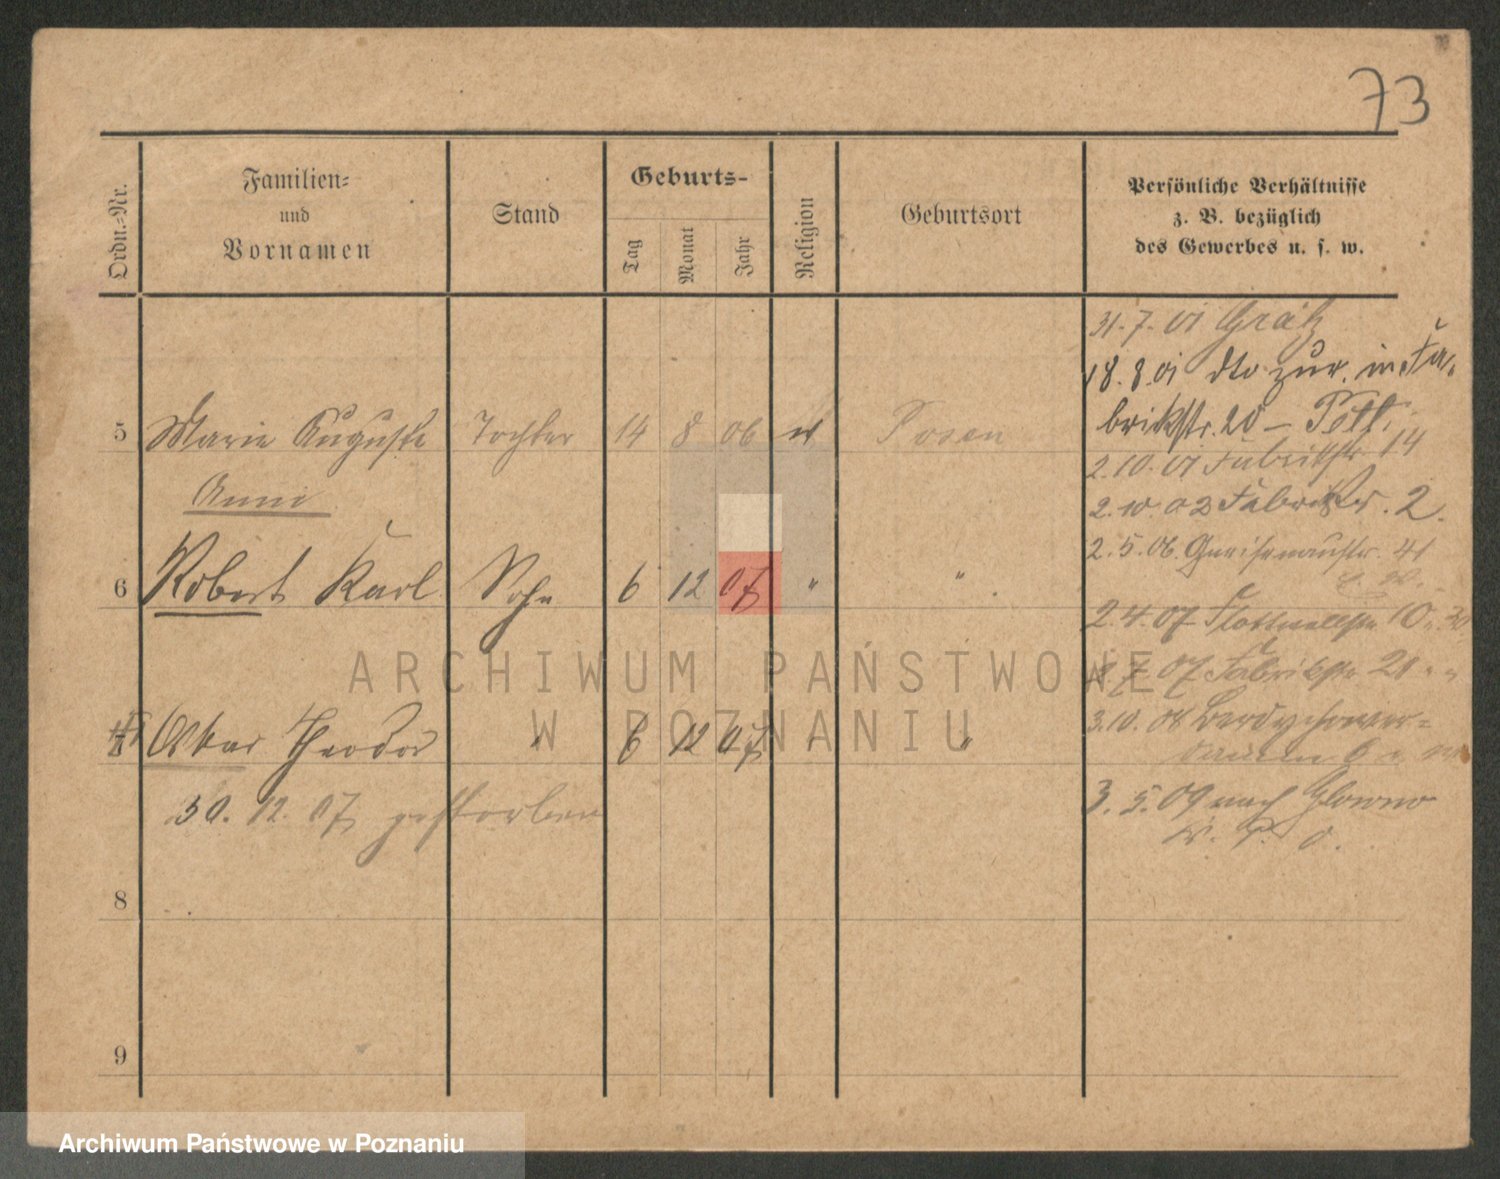 73
Ordn.-Nr.
Familien-
und
Vornamen
Stand
Geburts-
Tag
Monat
Jahr
Religion
Geburtsort
Persönliche Verhältnisse
z. B. bezüglich
des Gewerbes u. s. w.
31.7.01 Grätz
18.8.01 dto zur. in Fa-
brikstr. 20 –
5 Marie Auguste Tochter 14 8 06 Posen
2.10.01 Fabrikstr 14
Anni
2.10.02 Fabrikstr. 2.
2.5.06. Gneisenaustr. 41
6 Robert Karl Sohn 6 12 07 " "
2.4.07 Flottwellstr 10
7.07 Fabrikstr 20 " "
ARCHIWUM PAŃSTWOWE
W POZNANIU
7 Oskar Theodor " 6 12 07 " "
3.10.08 Berdychower-
3.5.09 nach Glowno
30.12.07 gestorben
8
9
Archiwum Państwowe w Poznaniu